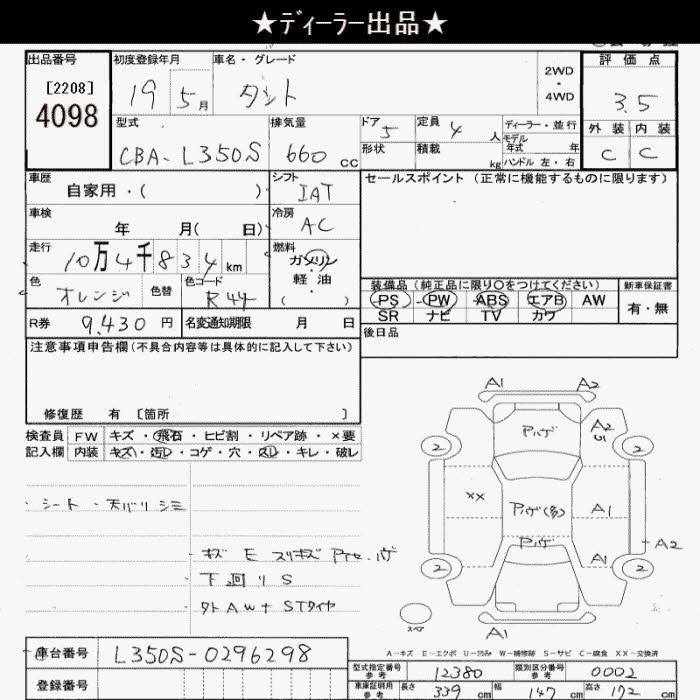 ★ディーラー出品★
出品番号 初度登録年月 車名・グレード 2WD ・ 4WD 評価点
[2208] 19 5月 タント 3.5
4098
型式 排気量 ドア 定員 ディーラー・並行 外装 内装
CBA-L350S 660cc 5 4人 モデル年式 年 C C
形状 積載 kg ハンドル 左・右
車歴 自家用・( ) シフト IAT セールスポイント (正常に機能するものに限ります)
車検 年 月( 日) 冷房 AC
走行 10万4千834km 燃料 ガソリン
軽油
( ・ )
色 オレンジ 色替 色コード R44
装備品(純正品に限り○をつけてください) 新車保証書
PS PW ABS エアB AW 有・無
SR ナビ TV カワ
R券 9,430円 名変通知期限 月 日 後日品
注意事項申告欄(不具合内容等は具体的に記入して下さい)
修復歴 有 [箇所 ]
検査員 FW キズ・飛石・ヒビ割・リペア跡・×要
記入欄 内装 キズ・汚レ・コゲ・穴・スレ・キレ・破レ
・シート・天バリシミ
A1 A2
パハゲ A2 U1
2 2
XX パハゲ(多) A1
パハゲ
A1 A2
2 2
A1
スペア
下回りS
外AW+STタイヤ
A-キズ E-エクボ U-凹み W-補修跡 S-サビ C-腐食 XX-交換済
車台番号 L350S-0296298
型式指定番号 参考 12380 類別区分番号 参考 0002
登録番号 車庫証明用 参考 長さ 339cm 幅 147cm 高さ 172cm